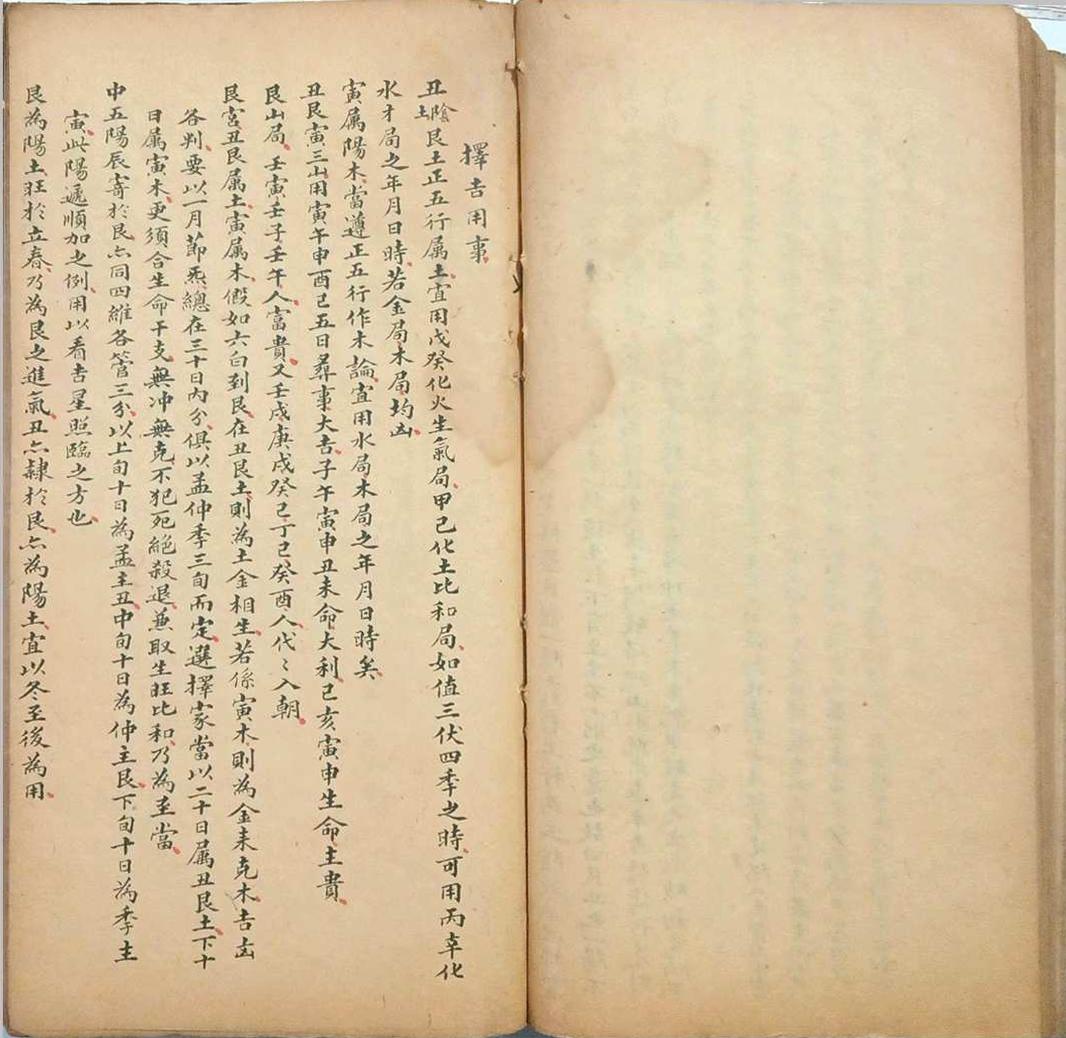 擇吉用事
丑陰土艮土正五行属土宜用戊癸化火生氣局甲己化土比和局如值三伏四季之時可用丙辛化
水才局之年月日時若金局木局均凶
寅属陽木當遵正五行作木論宜用水局木局之年月日時矣
丑艮寅三山用寅午申酉己五日彛事大吉子午寅申丑未命大利己亥寅申生命主貴
艮山局壬寅壬子壬午人富貴又壬戌庚戌癸己丁己癸酉人代〻入朝
艮宮丑艮属土寅属木假如六白到艮在丑艮土則為土金相生若係寅木則為金耒克木吉凶
各判要以一月節炁總在三十日內分俱以孟仲季三旬而定選擇家當以二十日属丑艮土下十
日属寅木更須合生命干支無冲無克不犯死絕殺退兼取生旺比和乃為至當
中五陽辰寄於艮亦同四維各管三分以上旬十日為孟主丑中旬十日為仲主艮下旬十日為季主
寅此陽遞順加之例用以看吉星照臨之方也
艮為陽土旺於立春乃為艮之進氣丑亦隷於艮亦為陽土宜以冬至後為用